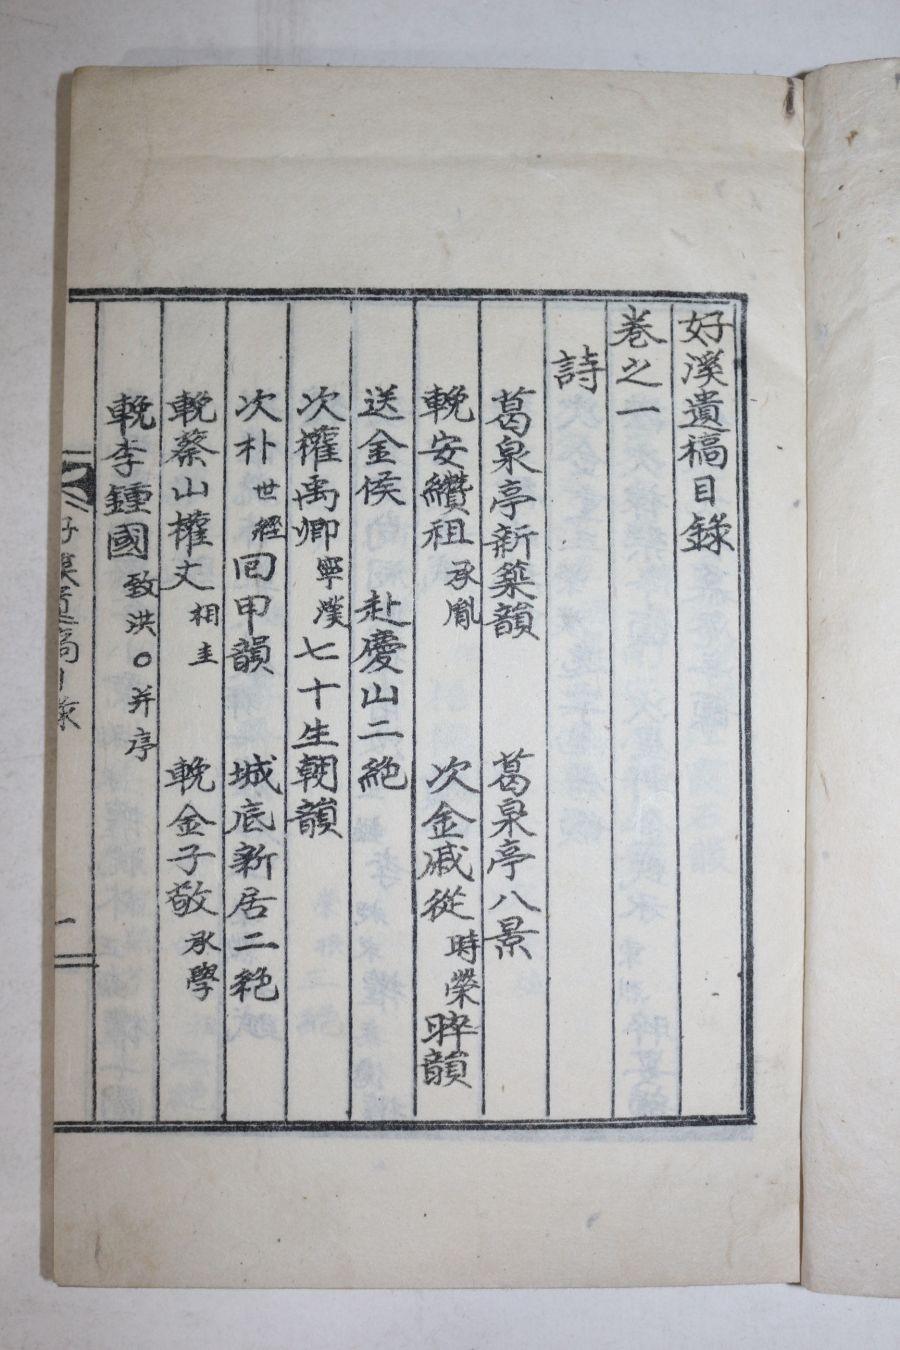 好溪遺稿目錄
卷之一
詩
葛泉亭新築韻 葛泉亭八景
輓安纘祖 承胤 次金戚從 時榮 晬韻
送金侯 赴慶山二絶
次權禹卿 寧漢 七十生朝韻
次朴 世經 回甲韻 城底新居二絶
輓蔡山權丈 相圭 輓金子敬 承學
輓李鍾國 致洪○并序
好溪遺稿目錄 一